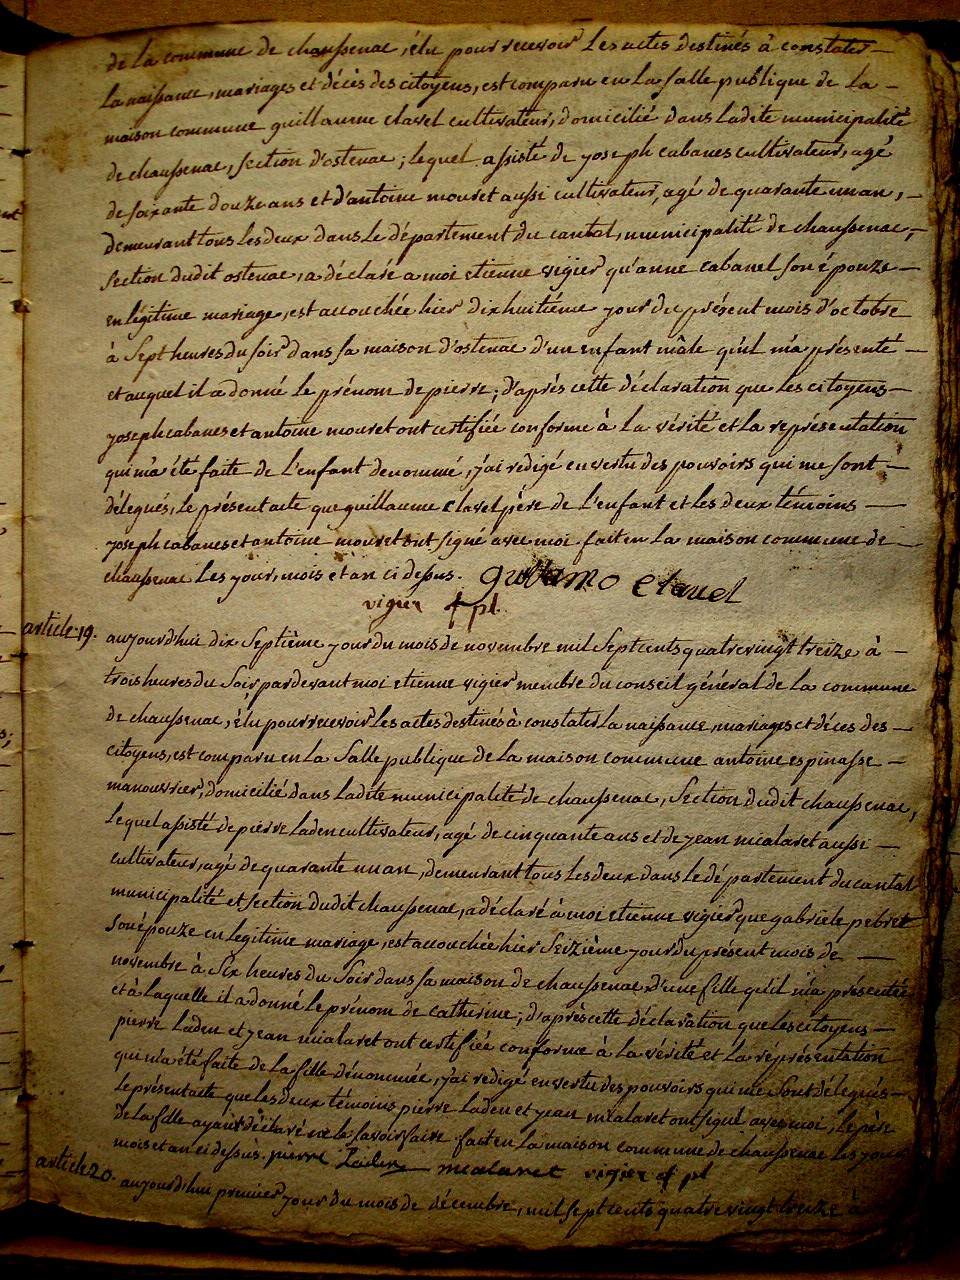 de la commune de chaussenac, élu pour recevoir les actes destinés à constater
la naissance, mariages et décès des citoyens, est comparu en la salle publique de la
maison commune guillaume clavel cultivateur, domicilié dans ladite municipalité
de chaussenac, section d'ostenac, lequel assisté de joseph cabanes cultivateur, agé
de soixante douze ans et d'antoine mouret aussi cultivateur, agé de quarante un an,
demeurant tous les deux dans le département du cantal, municipalité de chaussenac,
section dudit ostenac, a déclaré a moi etienne vigier qu'anne cabanel son épouze
en légitime mariage, est accouchée hier dix huitième jour du présent mois d'octobre
à sept heures du soir dans sa maison d'ostenac d'un enfant mâle qu'il m'a présenté
et auquel il a donné le prénom de pierre; d'après cette déclaration que les citoyens
joseph cabanes et antoine mouret ont certifiée conforme à la vérité et la représentation
qui m'a été faite de l'enfant denommé, j'ai rédigé en vertu des pouvoirs qui me sont
délégués, le présent acte que guillaume clavel père de l'enfant et les deux témoins
joseph cabanes et antoine mouret ont signé avec moi. fait en la maison commune de
chaussenac les jour, mois et an ci dessus. guillamo clauel
vigier
article 19. aujourd'hui dix septième jour du mois de novembre mil sept cents quatre vingt treize à
trois heures du soir pardevant moi etienne vigier membre du conseil général de la commune
de chaussenac, élu pour recevoir les actes destinés à constater la naissance, mariages et décès des
citoyens, est comparu en la salle publique de la maison commune antoine espinasse
manouvrier, domicilié dans ladite municipalité de chaussenac, section dudit chaussenac,
lequel assisté de pierre laden cultivateur, agé de cinquante ans et de jean mialaret aussi
cultivateur, agé de quarante un an, demeurant tous les deux dans le département du cantal
municipalité et section dudit chaussenac, a déclaré à moi etienne vigier que gabriele pebret
son épouze en legitime mariage, est accouchée hier seizième jour du présent mois de
novembre à six heures du soir dans sa maison de chaussenac d'une fille qu'il m'a présentée
et à laquelle il a donné le prénom de catherine; d'après cette déclaration que les citoyens
pierre laden et jean mialaret ont certifiée conforme à la vérité et la représentation
qui m'a été faite de la fille dénommée, j'ai redigé en vertu des pouvoirs qui me sont délegués
le présent acte que les deux témoins pierre laden et jean mialaret ont signé avec moi, le père
de la fille ayant déclaré ne le savoir faire. fait en la maison commune de chaussenac les jour
mois et an ci dessus. pierre Laden mialaret vigier
article 20. aujourd'hui premier jour du mois de décembre, mil sept cents quatre vingt treize à